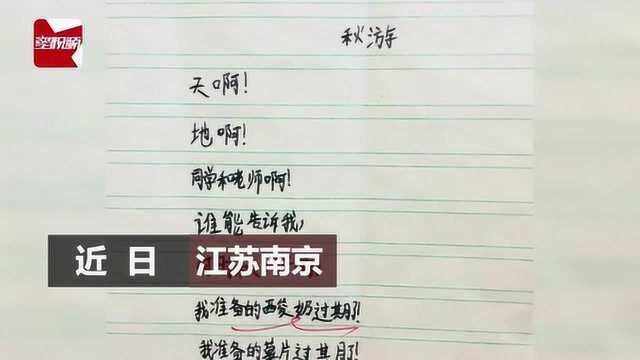 秋游
天啊!
地啊!
同学和老师啊!
谁能告诉我,
近日 江苏南京
我准备的酸奶过期了!
我准备的薯片过其月了!